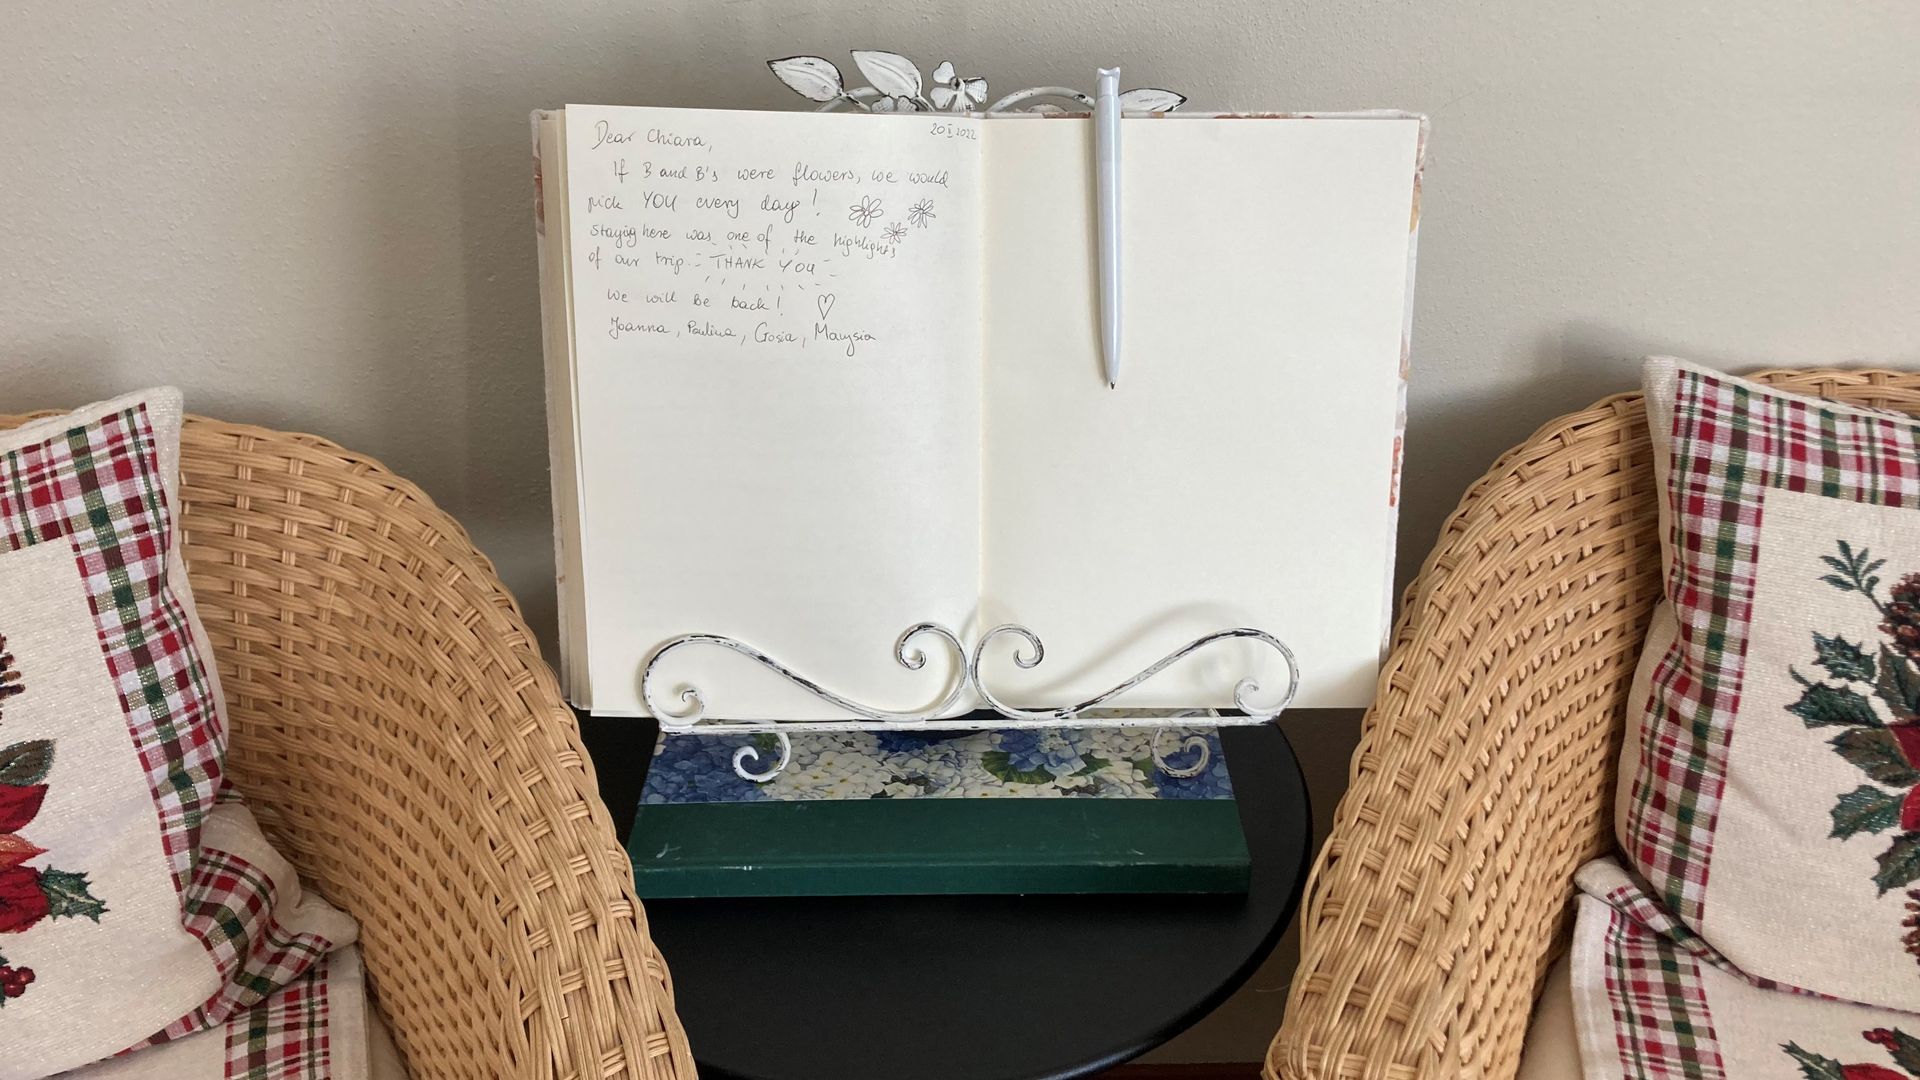 20 I 2022
Dear Chiara,
If B and B's were flowers, we would
pick YOU every day!
Staying here was one of the highlights
of our trip. THANK YOU
We will be back!
Joanna, Paulina, Gosia, Marysia